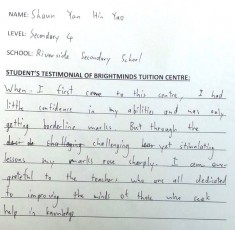 NAME: Shawn Yan Hin Yao
LEVEL: Secondary 4
SCHOOL: Riverside Secondary School
STUDENT'S TESTIMONIAL OF BRIGHTMINDS TUITION CENTRE:
When I first came to this centre, I had
little confidence in my abilities and was only
getting borderline marks. But through the
challenging yet stimulating
lessons my marks rose sharply. I am
grateful to the teachers who are all dedicated
to improving the minds of those who seek
help in knowledge